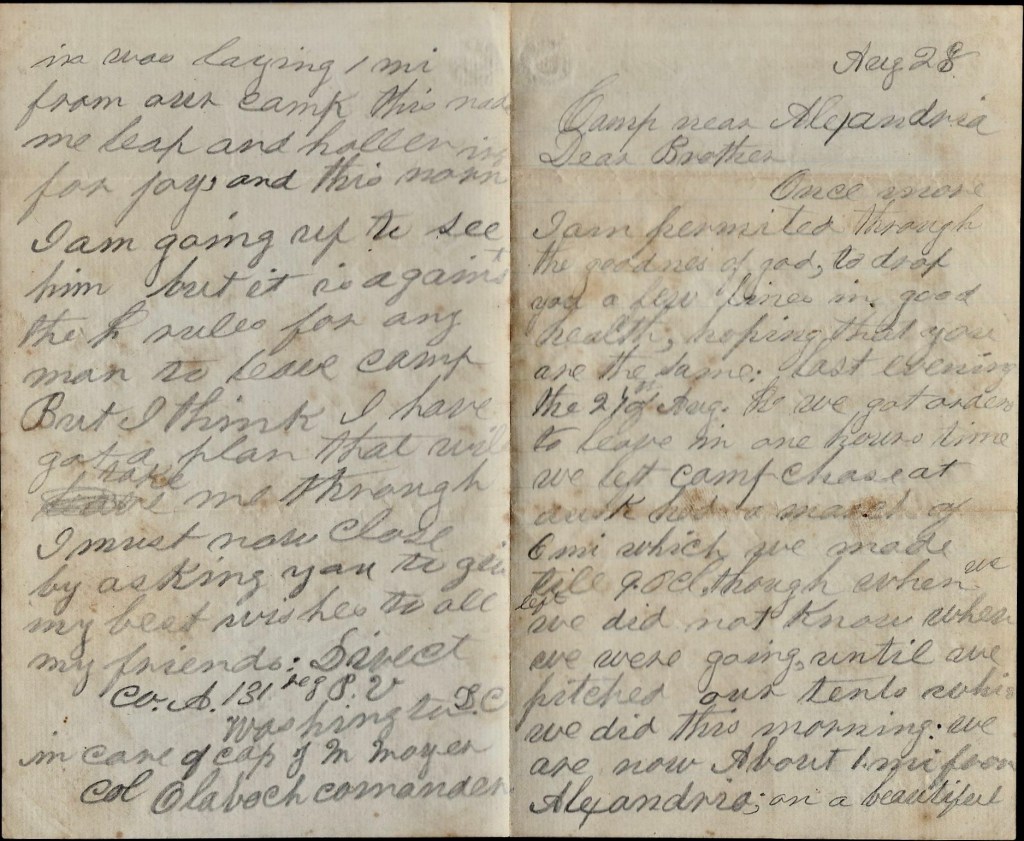 Aug 28
Camp near Alexandria
Dear Brother
Once more
I am permited through
the goodnes of god, to drop
you a few lines in good
health, hoping that you
are the same: last evening
the 27 of Aug. we got orders
to leave in one hours time
we left camp chase at
dusk had a march of
6 mi which we made
till 9. ocl, though when we
left
we did not know when
we were going, until we
pitched our tents whi
we did this morning: we
are now About 1 mi from
Alexandria; on a beautiful
in was laying 1 mi
from our camp this
me leap and holler
for joy; and this morn
I am going up to see
him but it is against
the rules for any
man to leave camp
But I think I have
got a plan that will
take
me through
I must now Close
by asking you to giv
my best wishes to all
my friends: Direct
Co. A. 131 reg P. V
Washington D. C
in care of cap J M Moyer
Col Olaboch comander